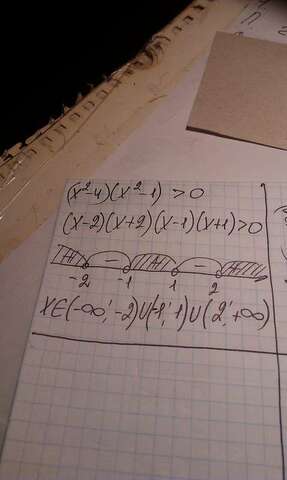 (x²-4)(x²-1) >0
(x-2)(x+2)(x-1)(x+1)>0
+ - + - +
-2 -1 1 2
XE(-∞;-2)U(-1;1)U(2;+∞)